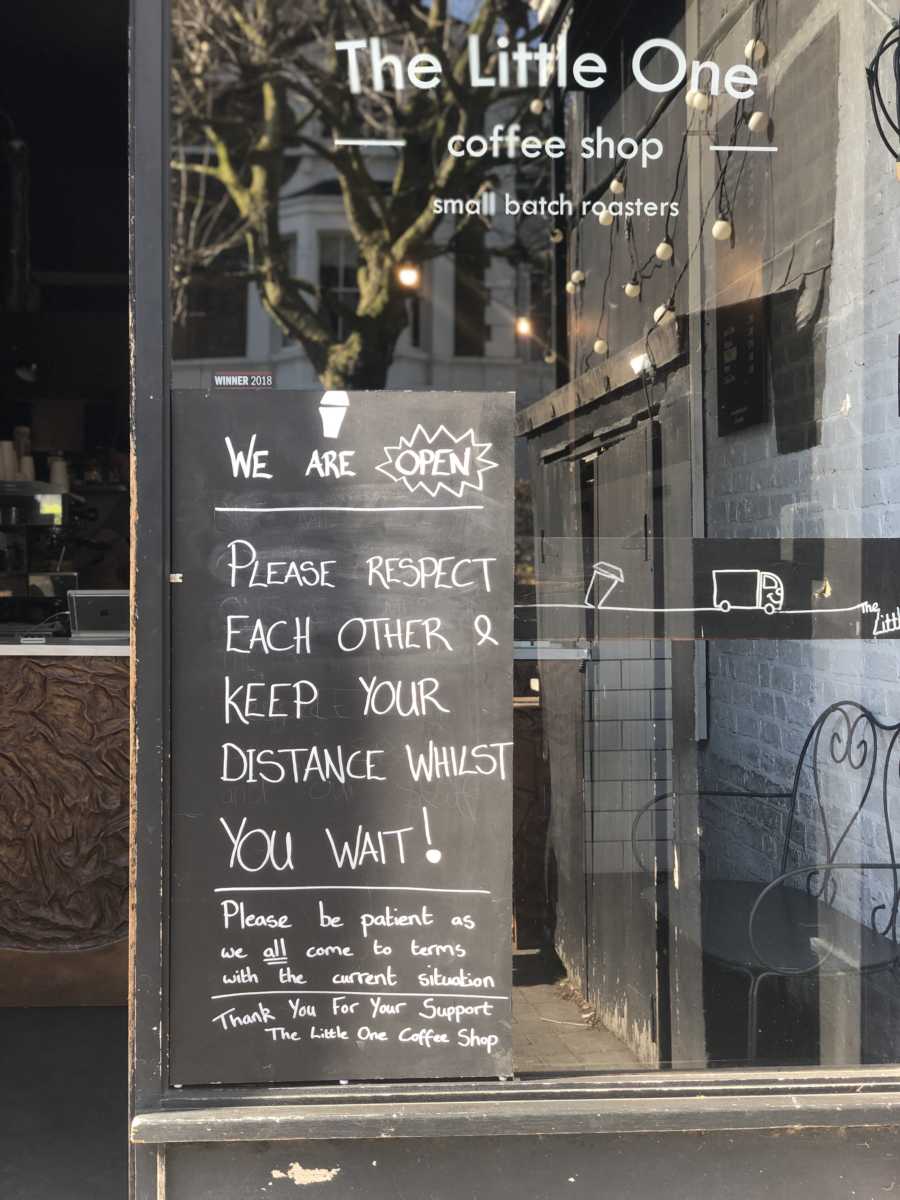 The Little One
coffee shop
small batch roasters
WINNER 2018
WE ARE OPEN
PLEASE RESPECT
EACH OTHER &
KEEP YOUR
DISTANCE WHILST
YOU WAIT!
Please be patient as
we all come to terms
with the current situation
Thank You For Your Support
The Little One Coffee Shop
The
Little